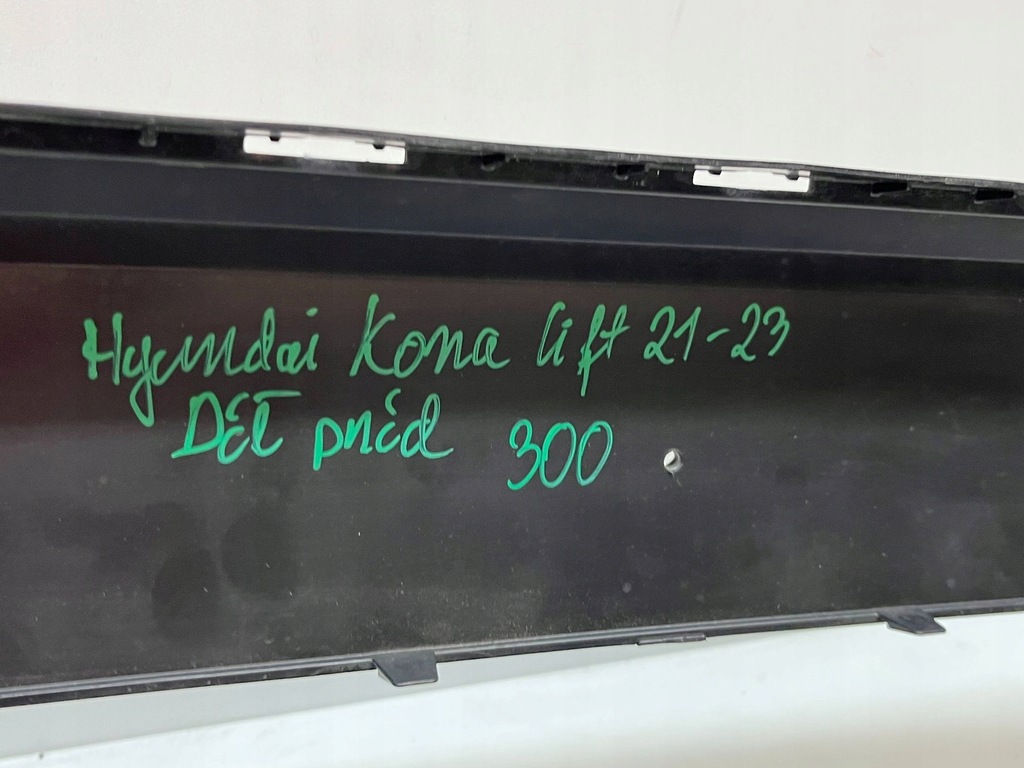 Hyundai Kona lift 21-23
Dół przód 300